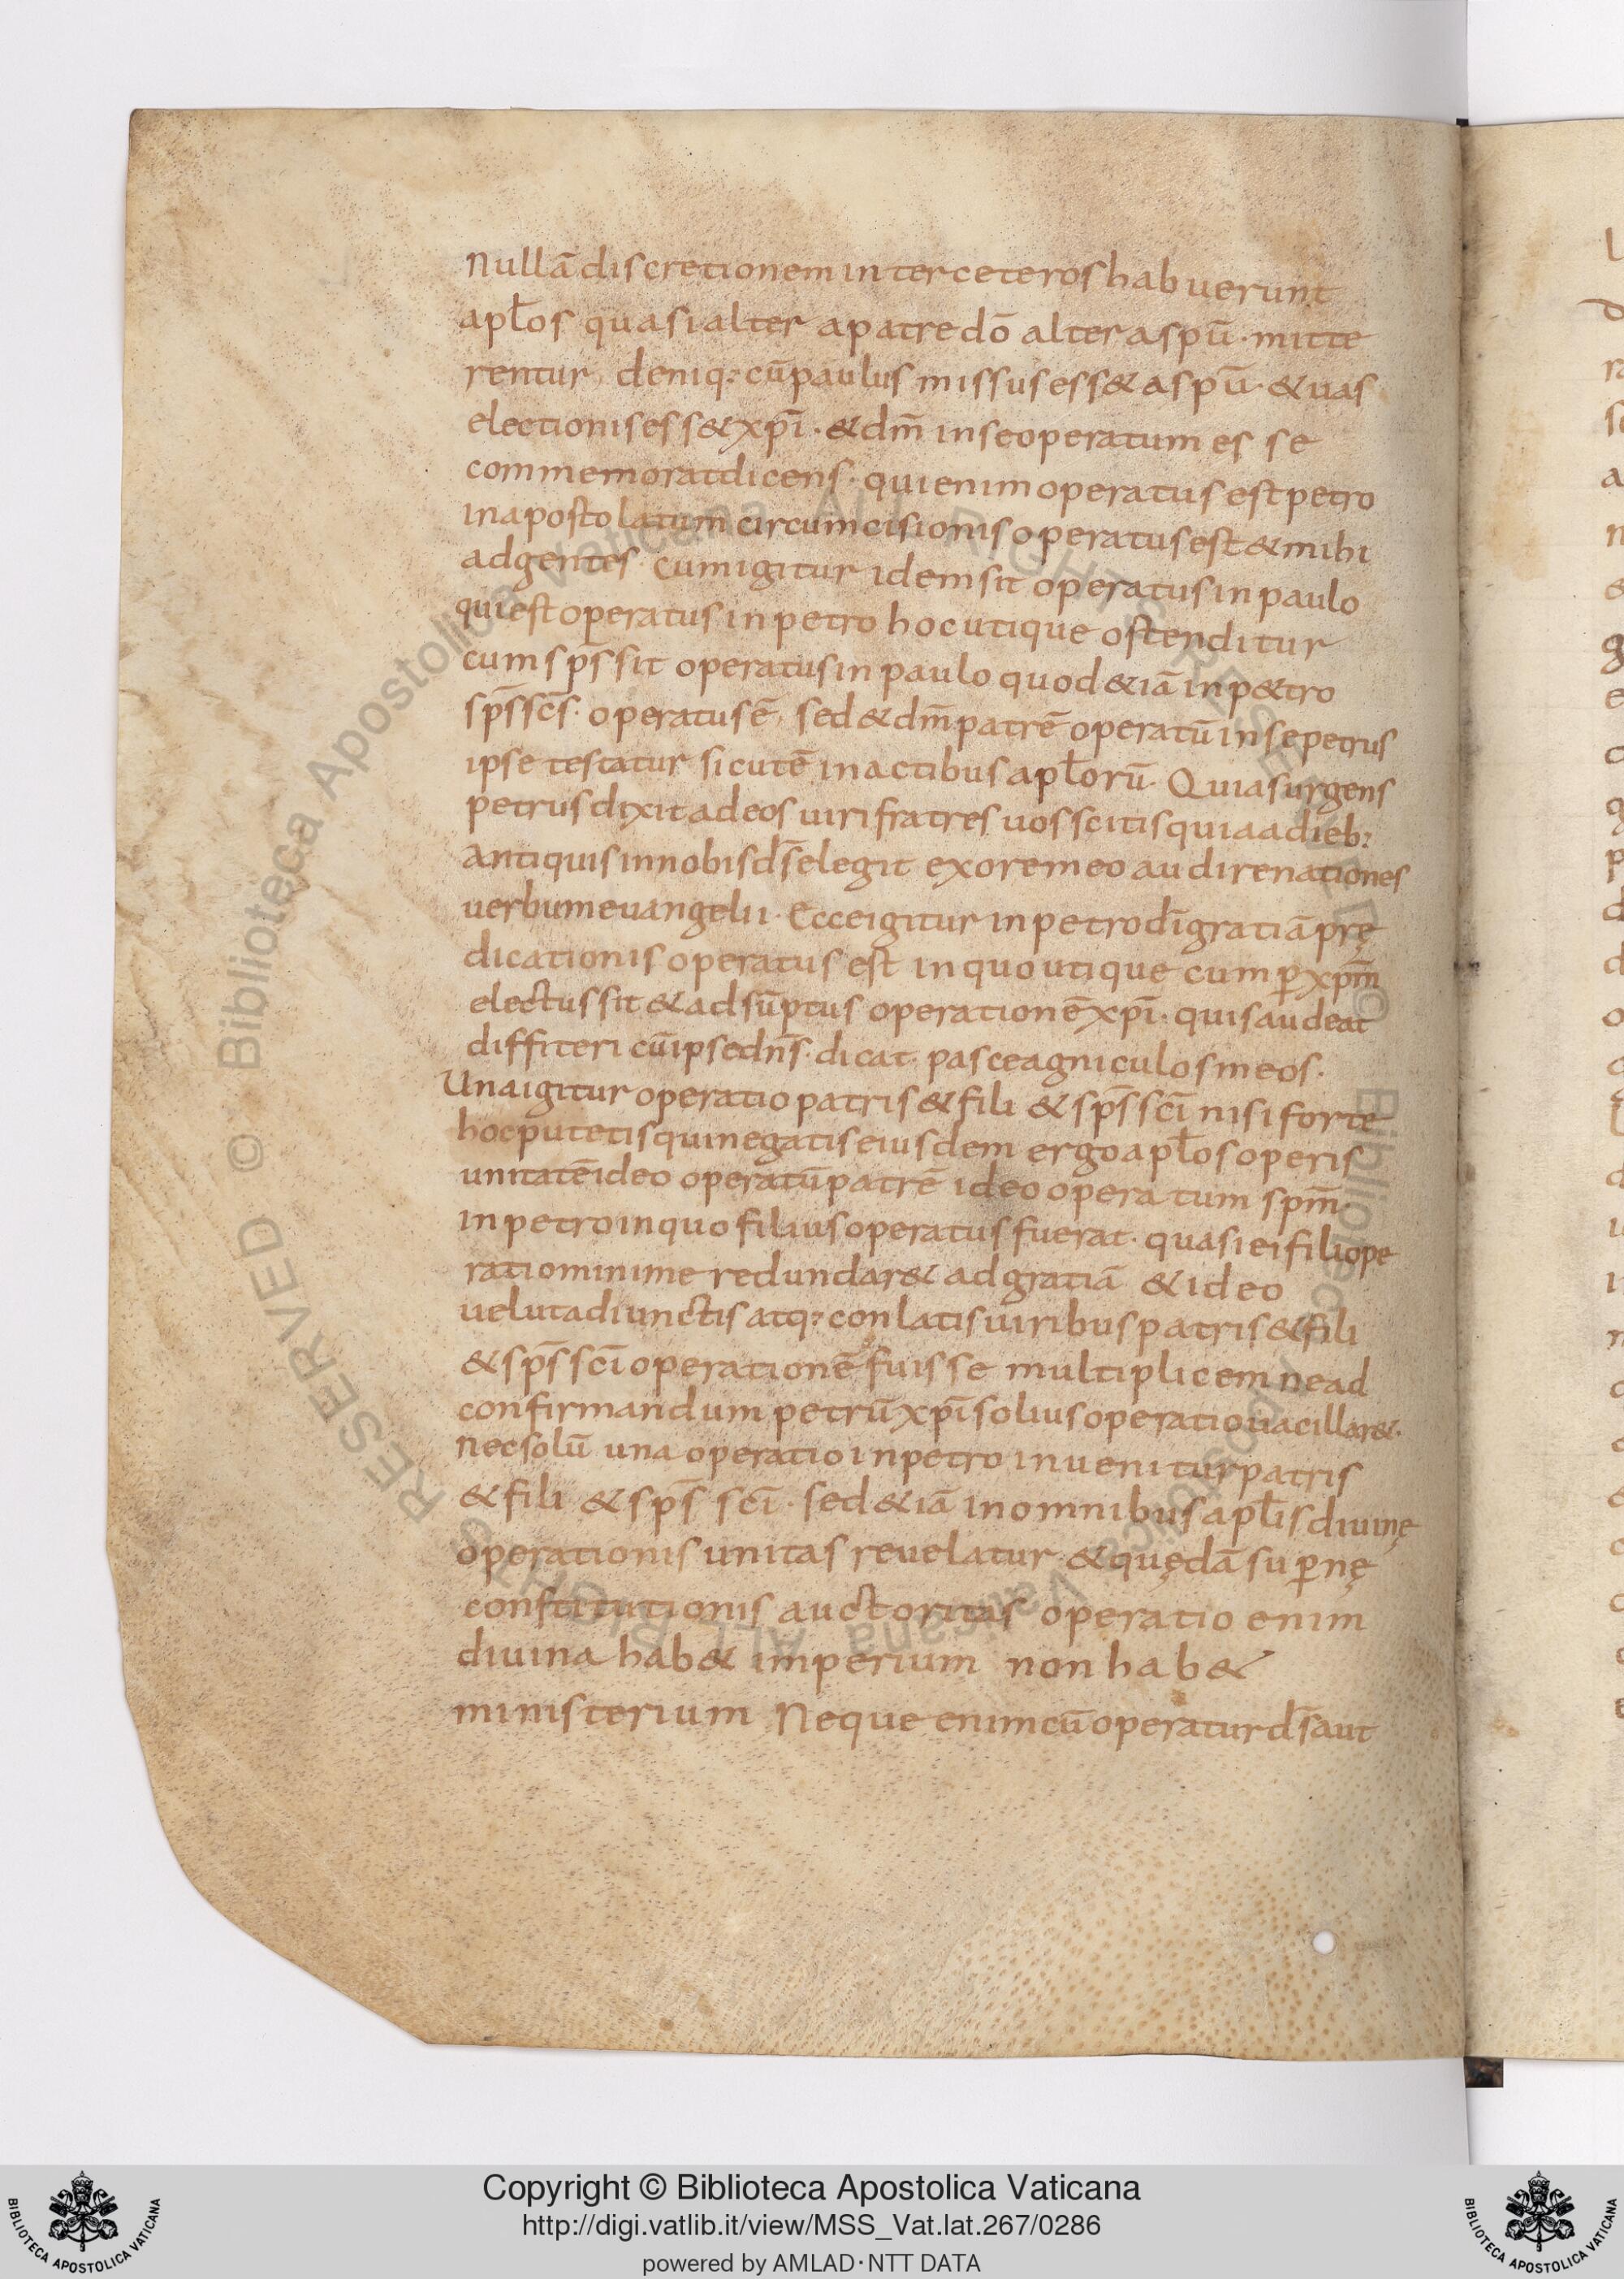 Nullā discretionem inter ceteros habuerunt
apl̄os quasi alter a patre dō alter a spū · mitte
rentur, deniq: cū paulus missus ess& a spū · & uas
electionis ess& xp̄i · & dm̄ in se operatum es se
commemorat dicens · qui enim operatus est petro
in apostolatum circumcisionis operatus est & mihi
ad gentes · Cum igitur idem sit operatus in paulo
qui est operatus in petro hoc utique ostenditur
cum sp̄s sit operatus in paulo quod &iā in p&ro
sp̄s sc̄s · operatus ē, sed & dm̄ patrē operatū in se petrus
ipse testatur sicut ē in actibus apl̄orū · Quia surgens
petrus dixit ad eos uiri fratres uos scitis quia a dieb:
antiquis in nobis ds̄ elegit ex ore meo audire nationes
uerbum euangelii · Ecce igitur in petro dī gratiā prę
dicationis operatus est in quo utique cum p̄ xpm̄
electus sit & adsūptus operationē xp̄i · quis audeat
diffiteri cū ipse dn̄s · dicat pasce agniculos meos ·
Una igitur operatio patris & fili & sp̄s sc̄i nisi forte
hoc putetis qui negatis eiusdem ergo apl̄os operis
unitatē ideo operatū patrē ideo operatum spm̄ ·
in petro in quo filius operatus fuerat · quasi ei fili ope
ratio minime redundar& ad gratiā & ideo
uelut adiunctis atq: conlatis uiribus patris & fili
& sp̄s sc̄i operationē fuisse multiplicem ne ad
confirmandum petrū xp̄i solius operatio uacillar& ·
Nec solū una operatio in petro inuenitur patris
& fili & sp̄s sc̄i · sed &iā in omnibus apl̄is diuinę
operationis unitas reuelatur · & quędā sup̄nę
constitutionis auctoritas operatio enim
diuina hab& imperium non hab&
ministerium Neque enim cū operatur ds̄ aut
Copyright © Biblioteca Apostolica Vaticana
http://digi.vatlib.it/view/MSS_Vat.lat.267/0286
powered by AMLAD · NTT DATA
BIBLIOTECA APOSTOLICA VATICANA
BIBLIOTECA APOSTOLICA VATICANA
© Biblioteca Apostolica Vaticana ALL RIGHTS RESERVED
© Biblioteca Apostolica Vaticana ALL RIGHTS RESERVED